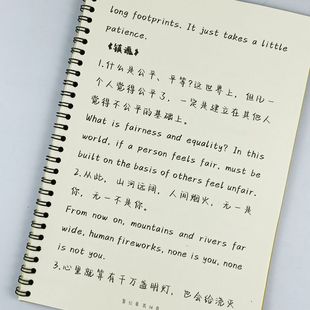 long footprints. It just takes a little
patience.
《镇魂》
1.什么是公平、平等?这世界上,但凡一
个人觉得公平了,一定是建立在其他人
觉得不公平的基础上。
What is fairness and equality? In this
world, if a person feels fair, must be
built on the basis of others feel unfair.
2.从此,山河远阔,人间烟火,无一是
你,无一不是你。
From now on, mountains and rivers far
wide, human fireworks, none is you, none
is not you.
3.心里就算有千万盏明灯,也会给浇灭